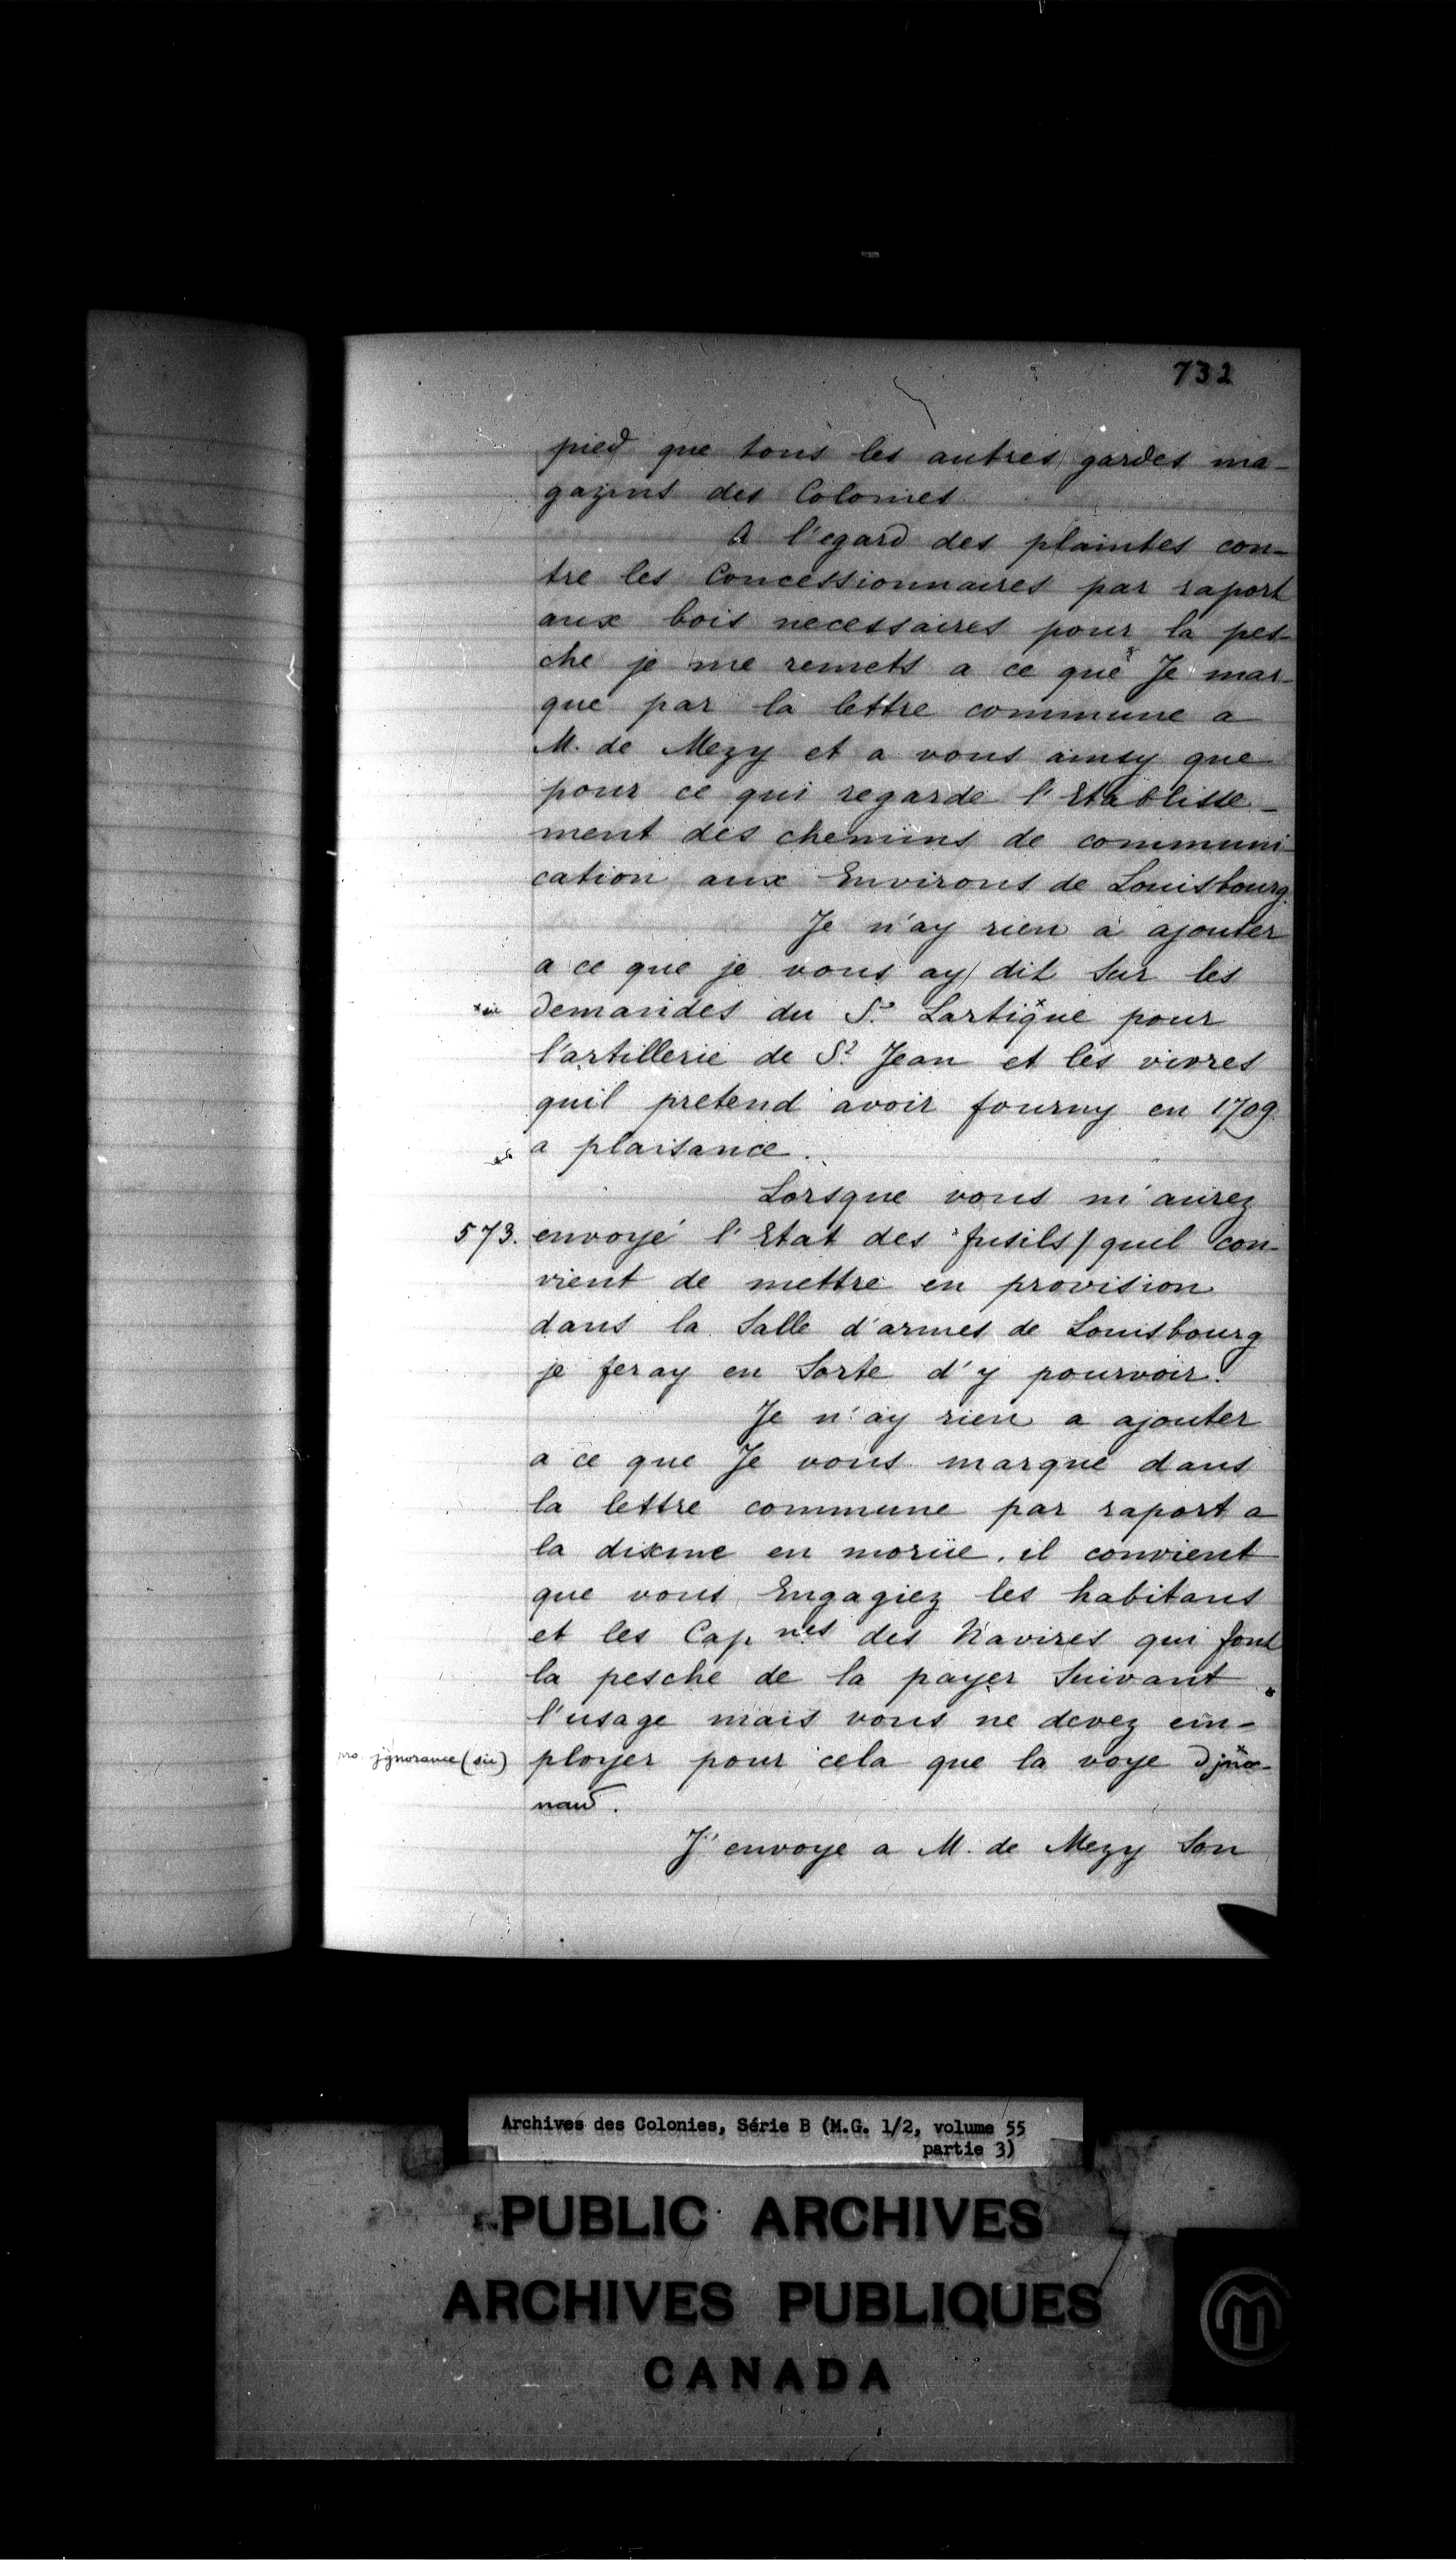 732
pied que tous les autres gardes ma-
gazins des Colonies
A l'egard des plaintes con-
tre les Concessionnaires par raport
aux bois necessaires pour la pes-
che je me remets a ce que Je mar-
que par la lettre commune a
M. de Mezy et a vous ainsy que
pour ce qui regarde l'Etablisse-
ment des chemins de communi-
cation aux Environs de Louisbourg.
Je n'ay rien a ajouter
a ce que je vous ay dit Sur les
demandes du Sr. Lartigue pour
l'artillerie de St. Jean et les vivres
quil pretend avoir fourny en 1709
a plaisance.
Lorsque vous m'aurez
573. envoyé l'Etat des fusils/quil con-
vient de mettre en provision
dans la Salle d'armes de Louisbourg
je feray en Sorte d'y pourvoir.
Je n'ay rien a ajouter
a ce que Je vous marque dans
la lettre commune par raport a
la dixme en moriie. il convient
que vous Engagiez les habitans
et les Cap nes des Navires qui font
la pesche de la payer Suivant
l'usage mais vous ne devez em-
jgnorance (sic) ployer pour cela que la voye
J'envoye a M. de Mezy Son
Archives des Colonies, Série B (M.G. 1/2, volume 55
partie 3)
PUBLIC ARCHIVES
ARCHIVES PUBLIQUES
CANADA